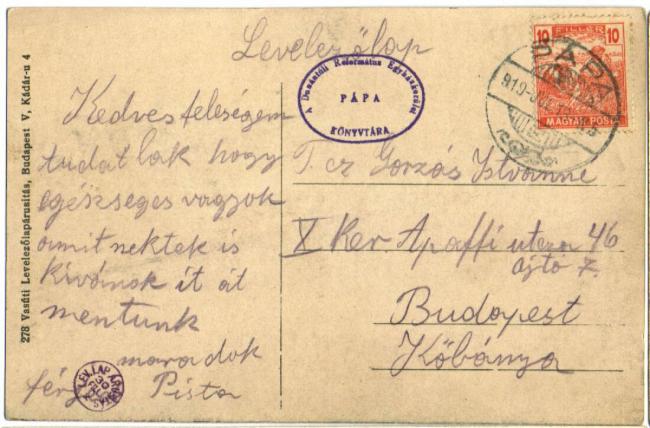 Levelezőlap
A Dunántúli Református Egyházkerület
PÁPA
KÖNYVTÁRA
10 FILLÉR 10
MAGYAR POSTA
PÁPA
919
278 Vasúti Levelezőlapárusitás, Budapest V, Kádár-u 4
Kedves feleségem
tudat lak hogy
egészséges vagyok
amit nektek is
kivánok ít át
mentunk
maradok
férj Pista
LEV. LAP ÁRUSITÁS
T. cz Gorzás Istvánne
X Ker. Apaffi utcza 46
ajtó 7.
Budapest
Kőbánya